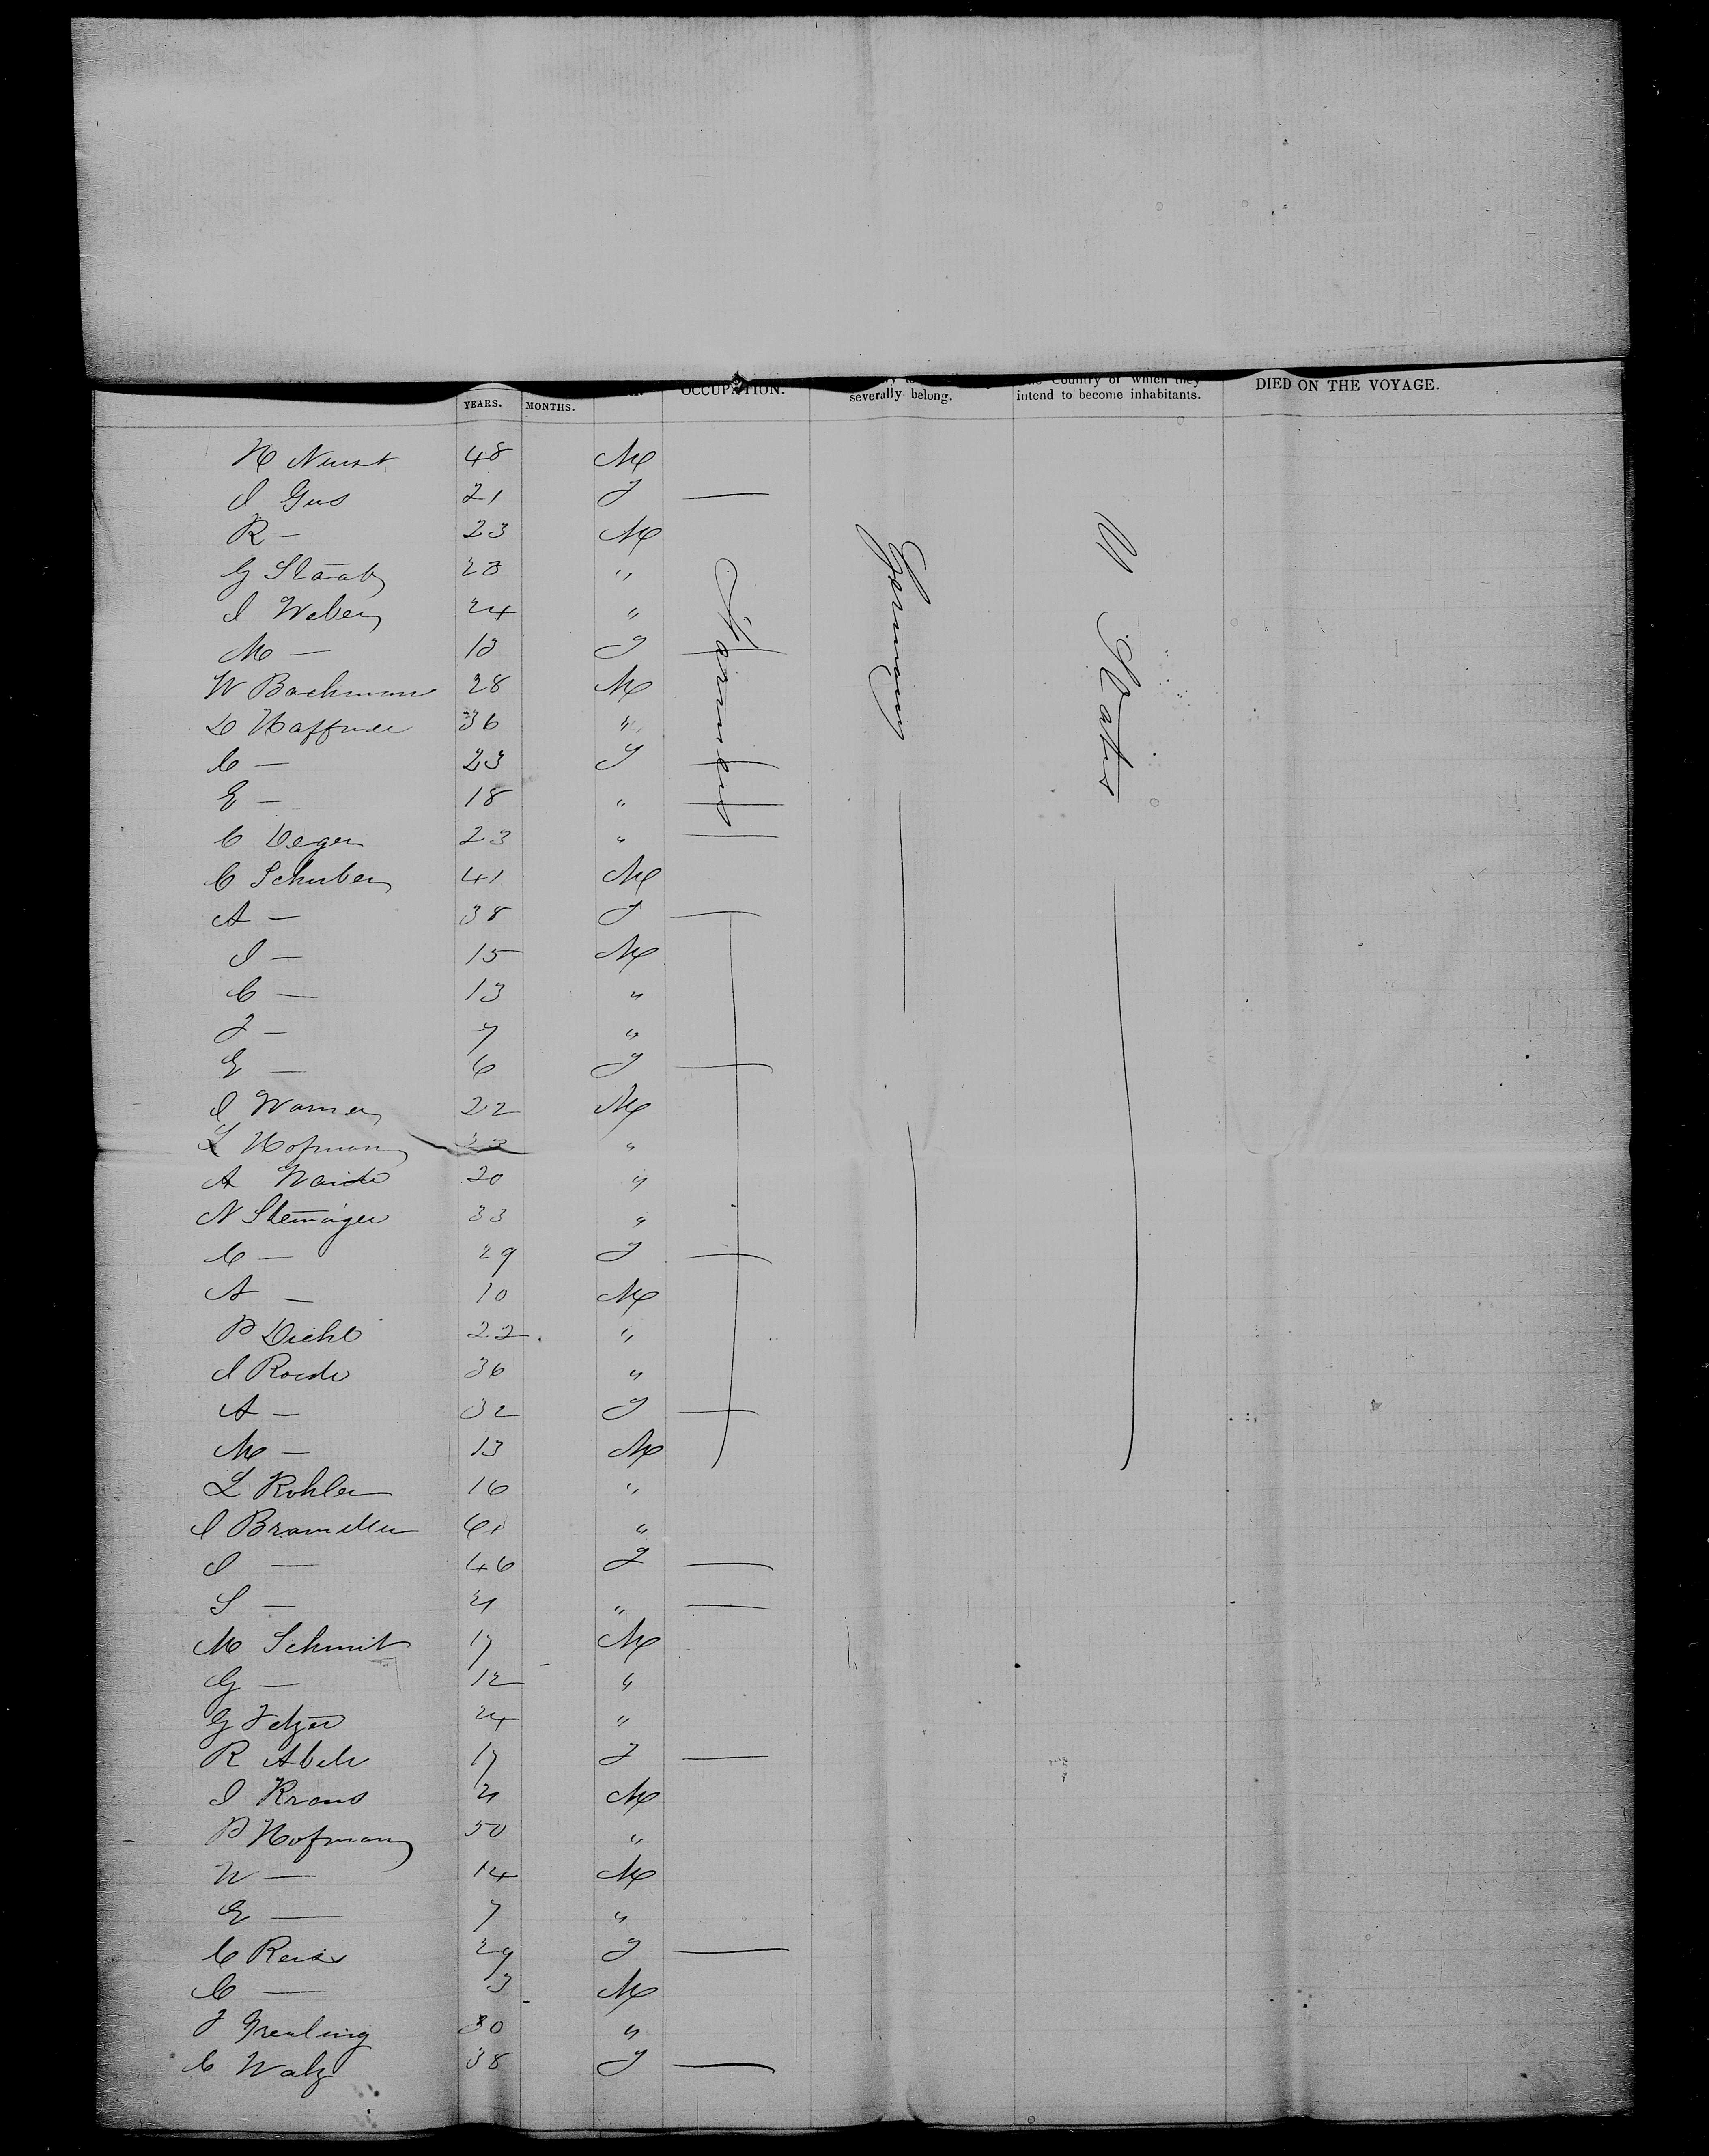 YEARS. MONTHS. OCCUPATION. severally belong. Country of which they intend to become inhabitants. DIED ON THE VOYAGE.
Farmers
Germany
U States
H 48 M
I Gus 21 F —
R — 23 M
G Staab 23 "
I Weber 24 "
M — 13 F —
W Bachman 28 M
D Haffner 36 "
C — 23 F —
E — 18 " —
C Deger 23 " —
C Schuber 41 M
A — 38 F —
I — 15 M
C — 13 "
F — 7 "
E — 6 F —
I Warner 22 M
L Hofman "
A 20 "
N 33 "
C — 29 F —
A — 10 M
P Diehl 22 "
I Roede 36 "
A — 32 F —
M — 13 M
L Kohler 16 "
I "
I — 46 F —
S — 21 " —
M Schmit 17 M
G — 12 "
G Fetzer 24 "
R Abele 17 F —
I Kraus 21 M
P Hofman 50 "
W — 14 M
E — 7 "
C Reiss 29 F —
C — 3 M
F Greuling 30 "
C Walz 38 F —